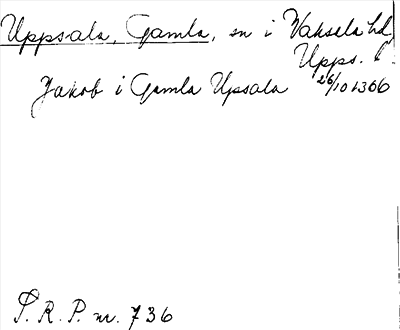 Uppsala, Gamla, sn i Vaksala hd
Upps. l.
Jakob i Gamla Upsala 26/10 1366
S. R. P. nr. 736